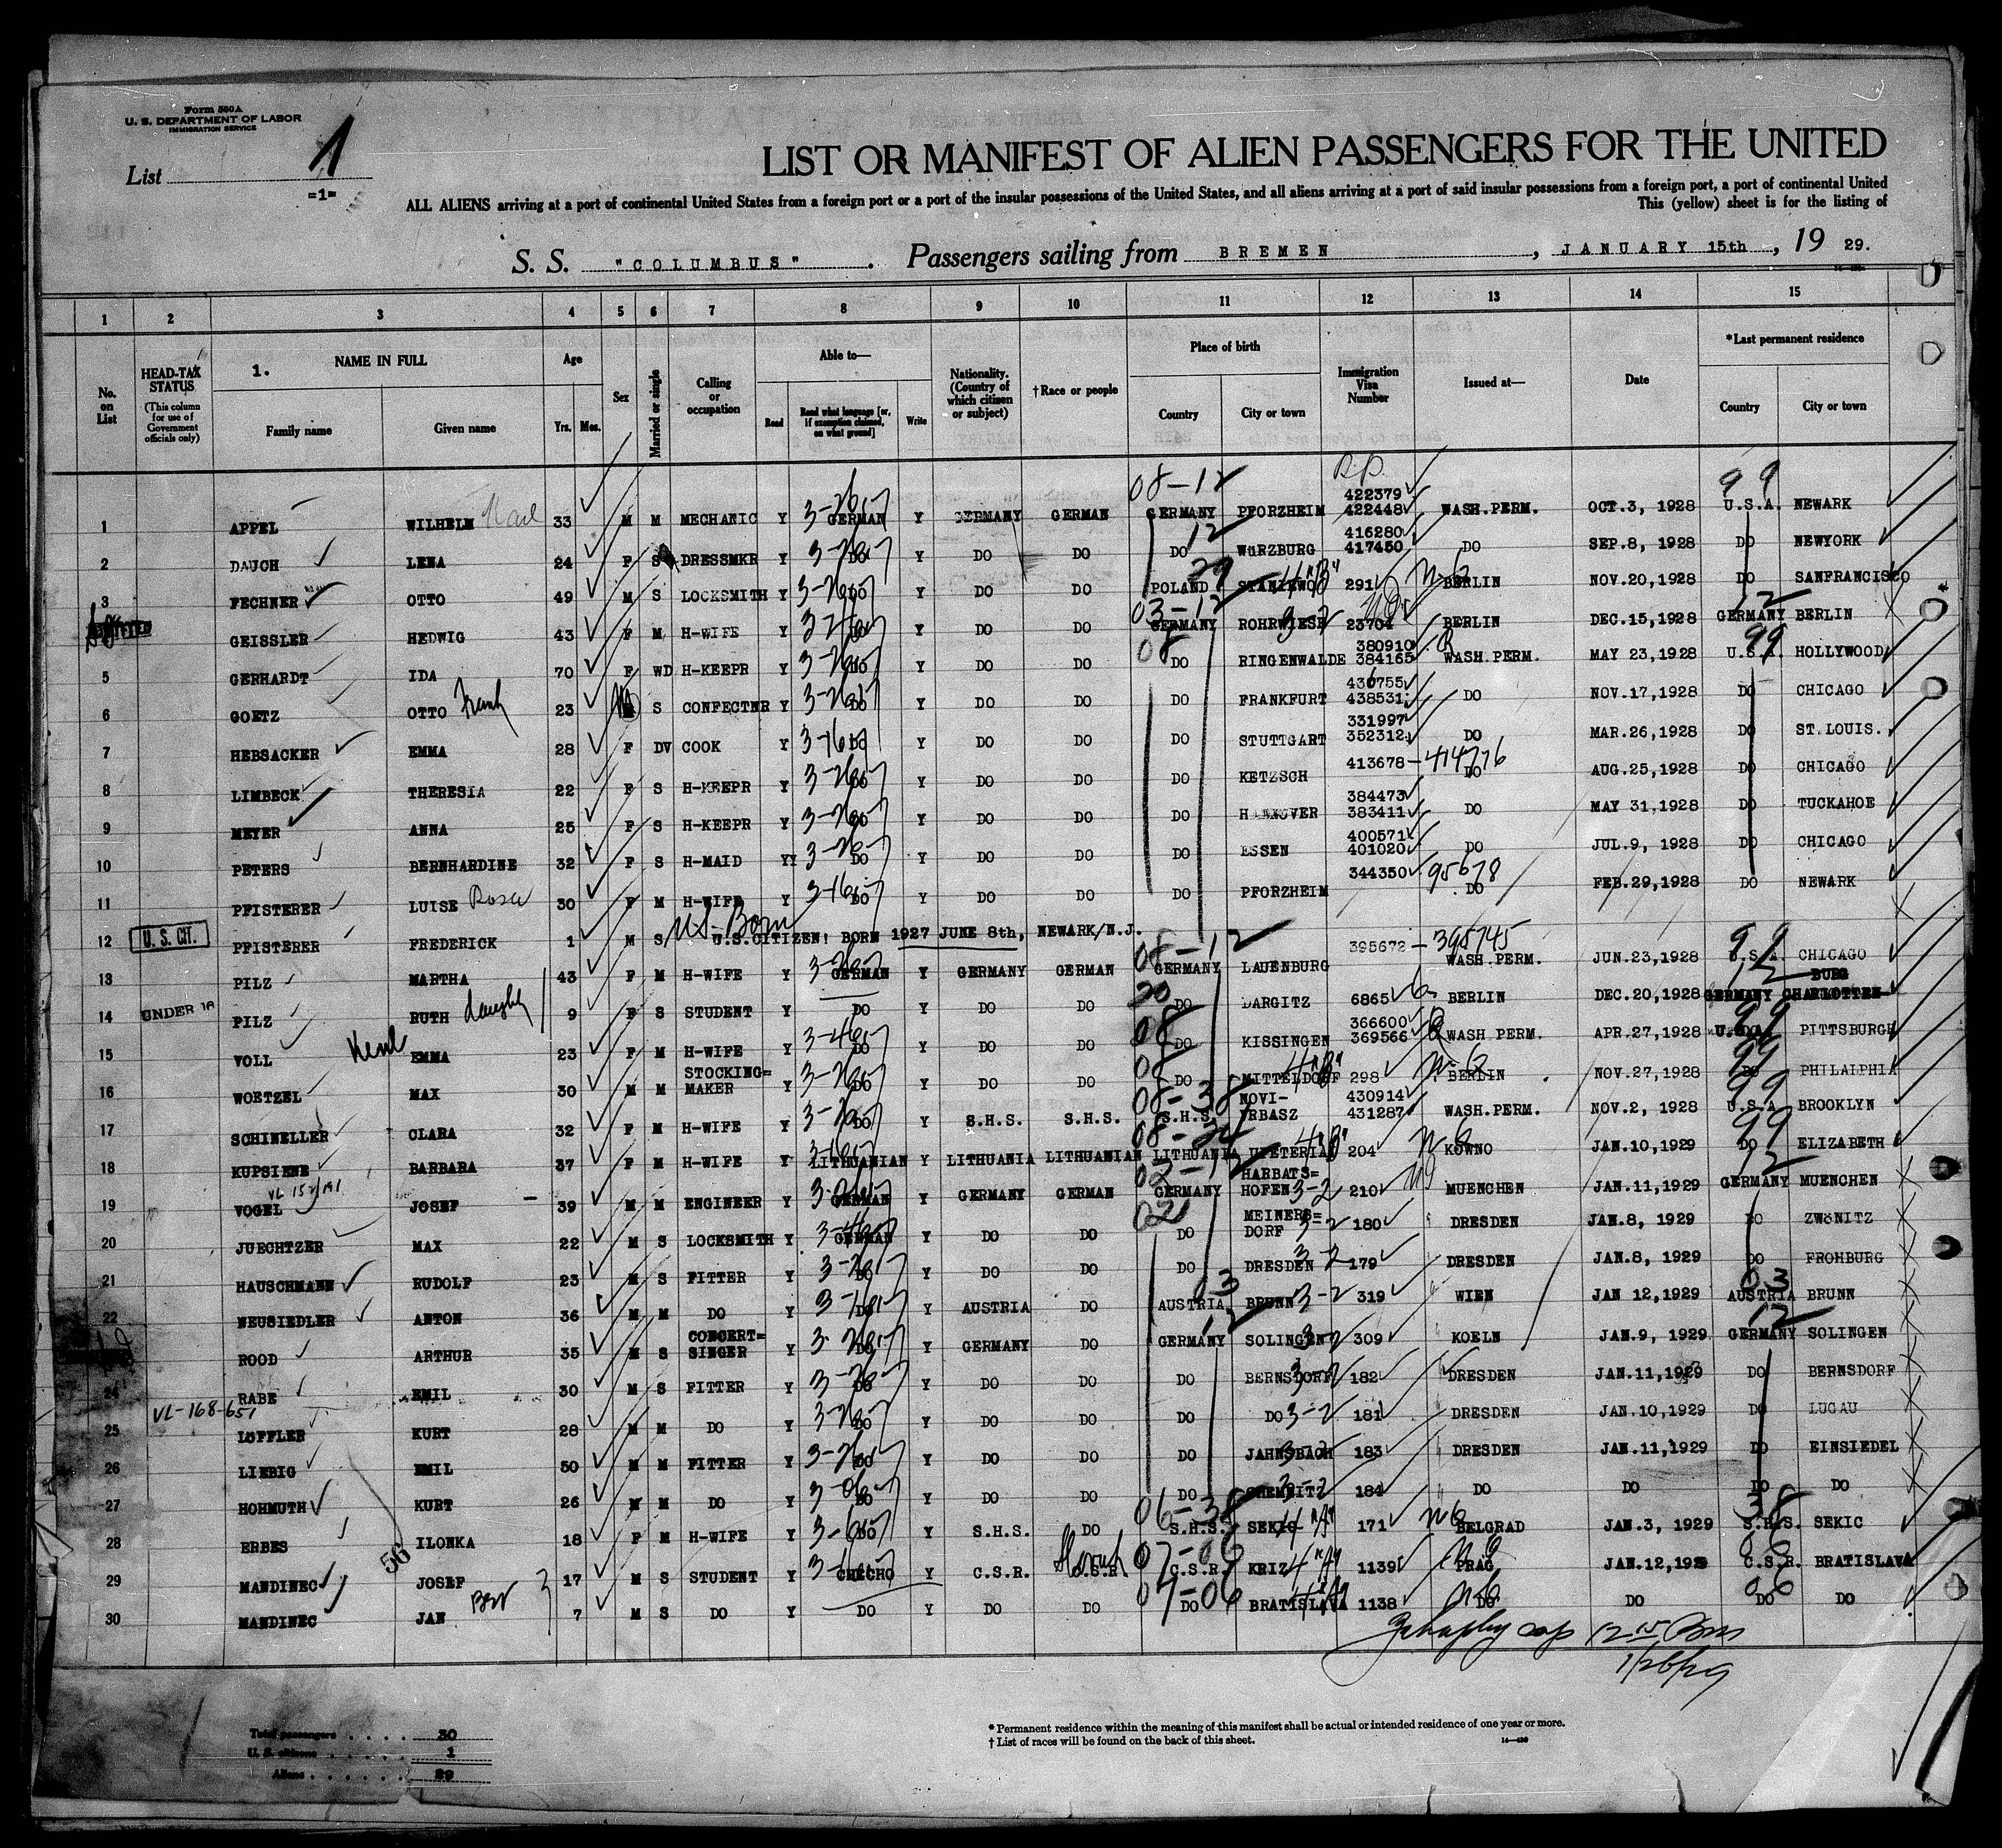 Form 500A
U. S. DEPARTMENT OF LABOR
IMMIGRATION SERVICE
List 1
=1=
LIST OR MANIFEST OF ALIEN PASSENGERS FOR THE UNITED
ALL ALIENS arriving at a port of continental United States from a foreign port or a port of the insular possessions of the United States, and all aliens arriving at a port of said insular possessions from a foreign port, a port of continental United
This (yellow) sheet is for the listing of
S. S. "COLUMBUS" . Passengers sailing from BREMEN , JANUARY 15th , 19 29.
1 2 3 4 5 6 7 8 9 10 11 12 13 14 15
No. on List
HEAD-TAX STATUS (This column for use of Government officials only)
1. NAME IN FULL
Family name Given name
Age Yrs. Mos.
Sex
Married or single
Calling or occupation
Able to— Read Read what language [or, if exemption claimed, on what ground] Write
Nationality. (Country of which citizen or subject)
†Race or people
Place of birth Country City or town
Immigration Visa Number
Issued at—
Date
*Last permanent residence Country City or town
1 APPEL WILHELM 33 M M MECHANIC Y GERMAN Y GERMANY GERMAN GERMANY PFORZHEIM 422379 422448 WASH.PERM. OCT.3, 1928 U.S.A. NEWARK
2 DAUCH LENA 24 F S DRESSMKR Y DO Y DO DO DO WüRZBURG 416280 417450 DO SEP.8, 1928 DO NEWYORK
3 FECHNER OTTO 49 M S LOCKSMITH Y DO Y DO DO POLAND 291 BERLIN NOV.20,1928 DO SANFRANCISCO
GEISSLER HEDWIG 43 F M H-WIFE Y DO Y DO DO GERMANY ROHRWIESE 23704 BERLIN DEC.15,1928 GERMANY BERLIN
5 GERHARDT IDA 70 F WD H-KEEPR Y DO Y DO DO DO RINGENWALDE 380910 384165 WASH.PERM. MAY 23,1928 U.S.A. HOLLYWOOD
6 GOETZ OTTO Frank 23 M S CONFECTNR Y DO Y DO DO DO FRANKFURT 430755 438531 DO NOV.17,1928 DO CHICAGO
7 HEBSACKER EMMA 28 F DV COOK Y DO Y DO DO DO STUTTGART 331997 352312 DO MAR.26,1928 DO ST.LOUIS.
8 LIMBECK THERESIA 22 F S H-KEEPR Y DO Y DO DO DO KETZSCH 413678 - 414776 DO AUG.25,1928 DO CHICAGO
9 MEYER ANNA 25 F S H-KEEPR Y DO Y DO DO DO HANNOVER 384473 383411 DO MAY 31,1928 DO TUCKAHOE
10 PETERS BERNHARDINE 32 F S H-MAID YY DO Y DO DO DO ESSEN 400571 401020 DO JUL.9, 1928 DO CHICAGO
11 PFISTERER LUISE Rosa 30 F M H-WIFE Y DO Y DO DO DO PFORZHEIM 344350 95678 DO FEB.29,1928 DO NEWARK
12 U.S. CIT. PFISTERER FREDERICK 1 M S U.S.-Born U.S.CITIZEN! BORN 1927 JUNE 8th, NEWARK/N.J.
13 PILZ MARTHA 43 F M H-WIFE Y GERMAN Y GERMANY GERMAN GERMANY LAUENBURG 395672 - 395745 WASH.PERM. JUN.23,1928 U.S.A. CHICAGO
14 UNDER 16 PILZ RUTH daughter 9 F S STUDENT Y DO Y DO DO DO DARGITZ 6865 BERLIN DEC.20,1928 GERMANY CHARLOTTEN BURG
15 VOLL EMMA 23 F M H-WIFE Y DO Y DO DO DO KISSINGEN 366600 369566 WASH PERM. APR.27,1928 U.S.A. PITTSBURGH
16 WOETZEL MAX 30 M M STOCKING= MAKER Y DO Y DO DO DO MITTELDORF 298 BERLIN NOV.27,1928 DO PHILALPHIA
17 SCHINELLER CLARA 32 F M H-WIFE Y DO Y S.H.S. S.H.S. S.H.S. NOVI- VRBASZ 430914 431287 WASH.PERM. NOV.2, 1928 U.S.A. BROOKLYN
18 KUPSIENE BARBARA 37 F M H-WIFE Y LITHUANIAN Y LITHUANIA LITHUANIAN LITHUANIA 204 KOWNO JAN.10,1929 DO ELIZABETH
19 VOGEL JOSEF 39 M M ENGINEER Y GERMAN Y GERMANY GERMAN GERMANY HARBATS= HOFEN 3-2 210 MUENCHEN JAN.11,1929 GERMANY MUENCHEN
20 JUECHTZER MAX 22 M S LOCKSMITH Y GERMAN Y DO DO DO MEINERS= DORF 3-2 180 DRESDEN JAN.8, 1929 DO ZWöNITZ
21 HAUSCHMANN RUDOLF 23 M S FITTER Y DO Y DO DO DO DRESDEN 3-2 179 DRESDEN JAN.8, 1929 DO FROHBURG
22 NEUSIEDLER ANTON 36 M M DO Y DO Y AUSTRIA DO AUSTRIA BRUNN 3-2 319 WIEN JAN 12,1929 AUSTRIA BRUNN
ROOD ARTHUR 35 M S CONCERT= SINGER Y DO Y GERMANY DO GERMANY SOLINGEN 309 KOELN JAN.9, 1929 GERMANY SOLINGEN
24 RABE EMIL 30 M S FITTER Y DO Y DO DO DO BERNSDORF 182 DRESDEN JAN.11,1929 DO BERNSDORF
VL-168-651
25 LöFFLER KURT 28 M M DO Y DO Y DO DO DO DO 3-2 181 DRESDEN JAN.10,1929 DO LUGAU
26 LIEBIG EMIL 50 M M FITTER Y DO Y DO DO DO JAHNSBACH 183 DRESDEN JAN.11,1929 DO EINSIEDEL
27 HOHMUTH KURT 26 M M DO Y DO Y DO DO DO CHEMNITZ 184 DO DO DO DO
28 ERBES ILONKA 18 F M H-WIFE Y DO Y S.H.S. DO S.H.S. SEKIC 171 BELGRAD JAN.3, 1929 S.H.S. SEKIC
29 MANDINEC JOSEF 17 M S STUDENT Y CHECHO Y C.S.R. C.S.R. Slovak C.S.R. KRIZ 1139 PRAG JAN.12,1929 C.S.R. BRATISLAVA
30 MANDINEC JAN 7 M S DO Y DO Y DO DO DO BRATISLAVA 1138 DO DO DO DO
56
1/26/29
Total passengers . . . . 30
U. S. citizens . . . . 1
Aliens . . . . . . 29
* Permanent residence within the meaning of this manifest shall be actual or intended residence of one year or more.
† List of races will be found on the back of this sheet.